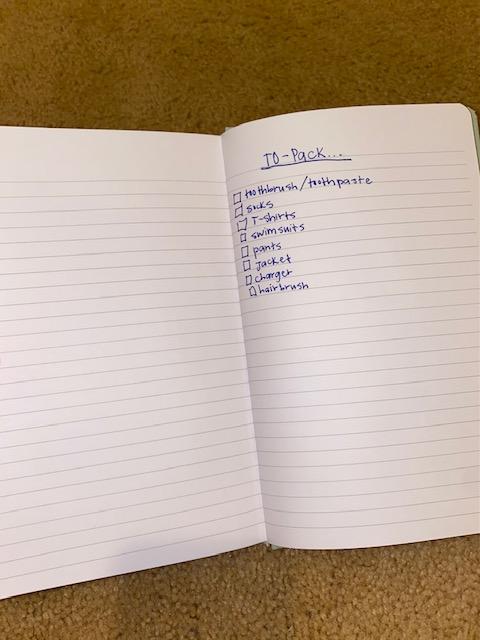 TO-Pack...
toothbrush/toothpaste
socks
T-shirts
swimsuits
pants
Jacket
charger
hairbrush